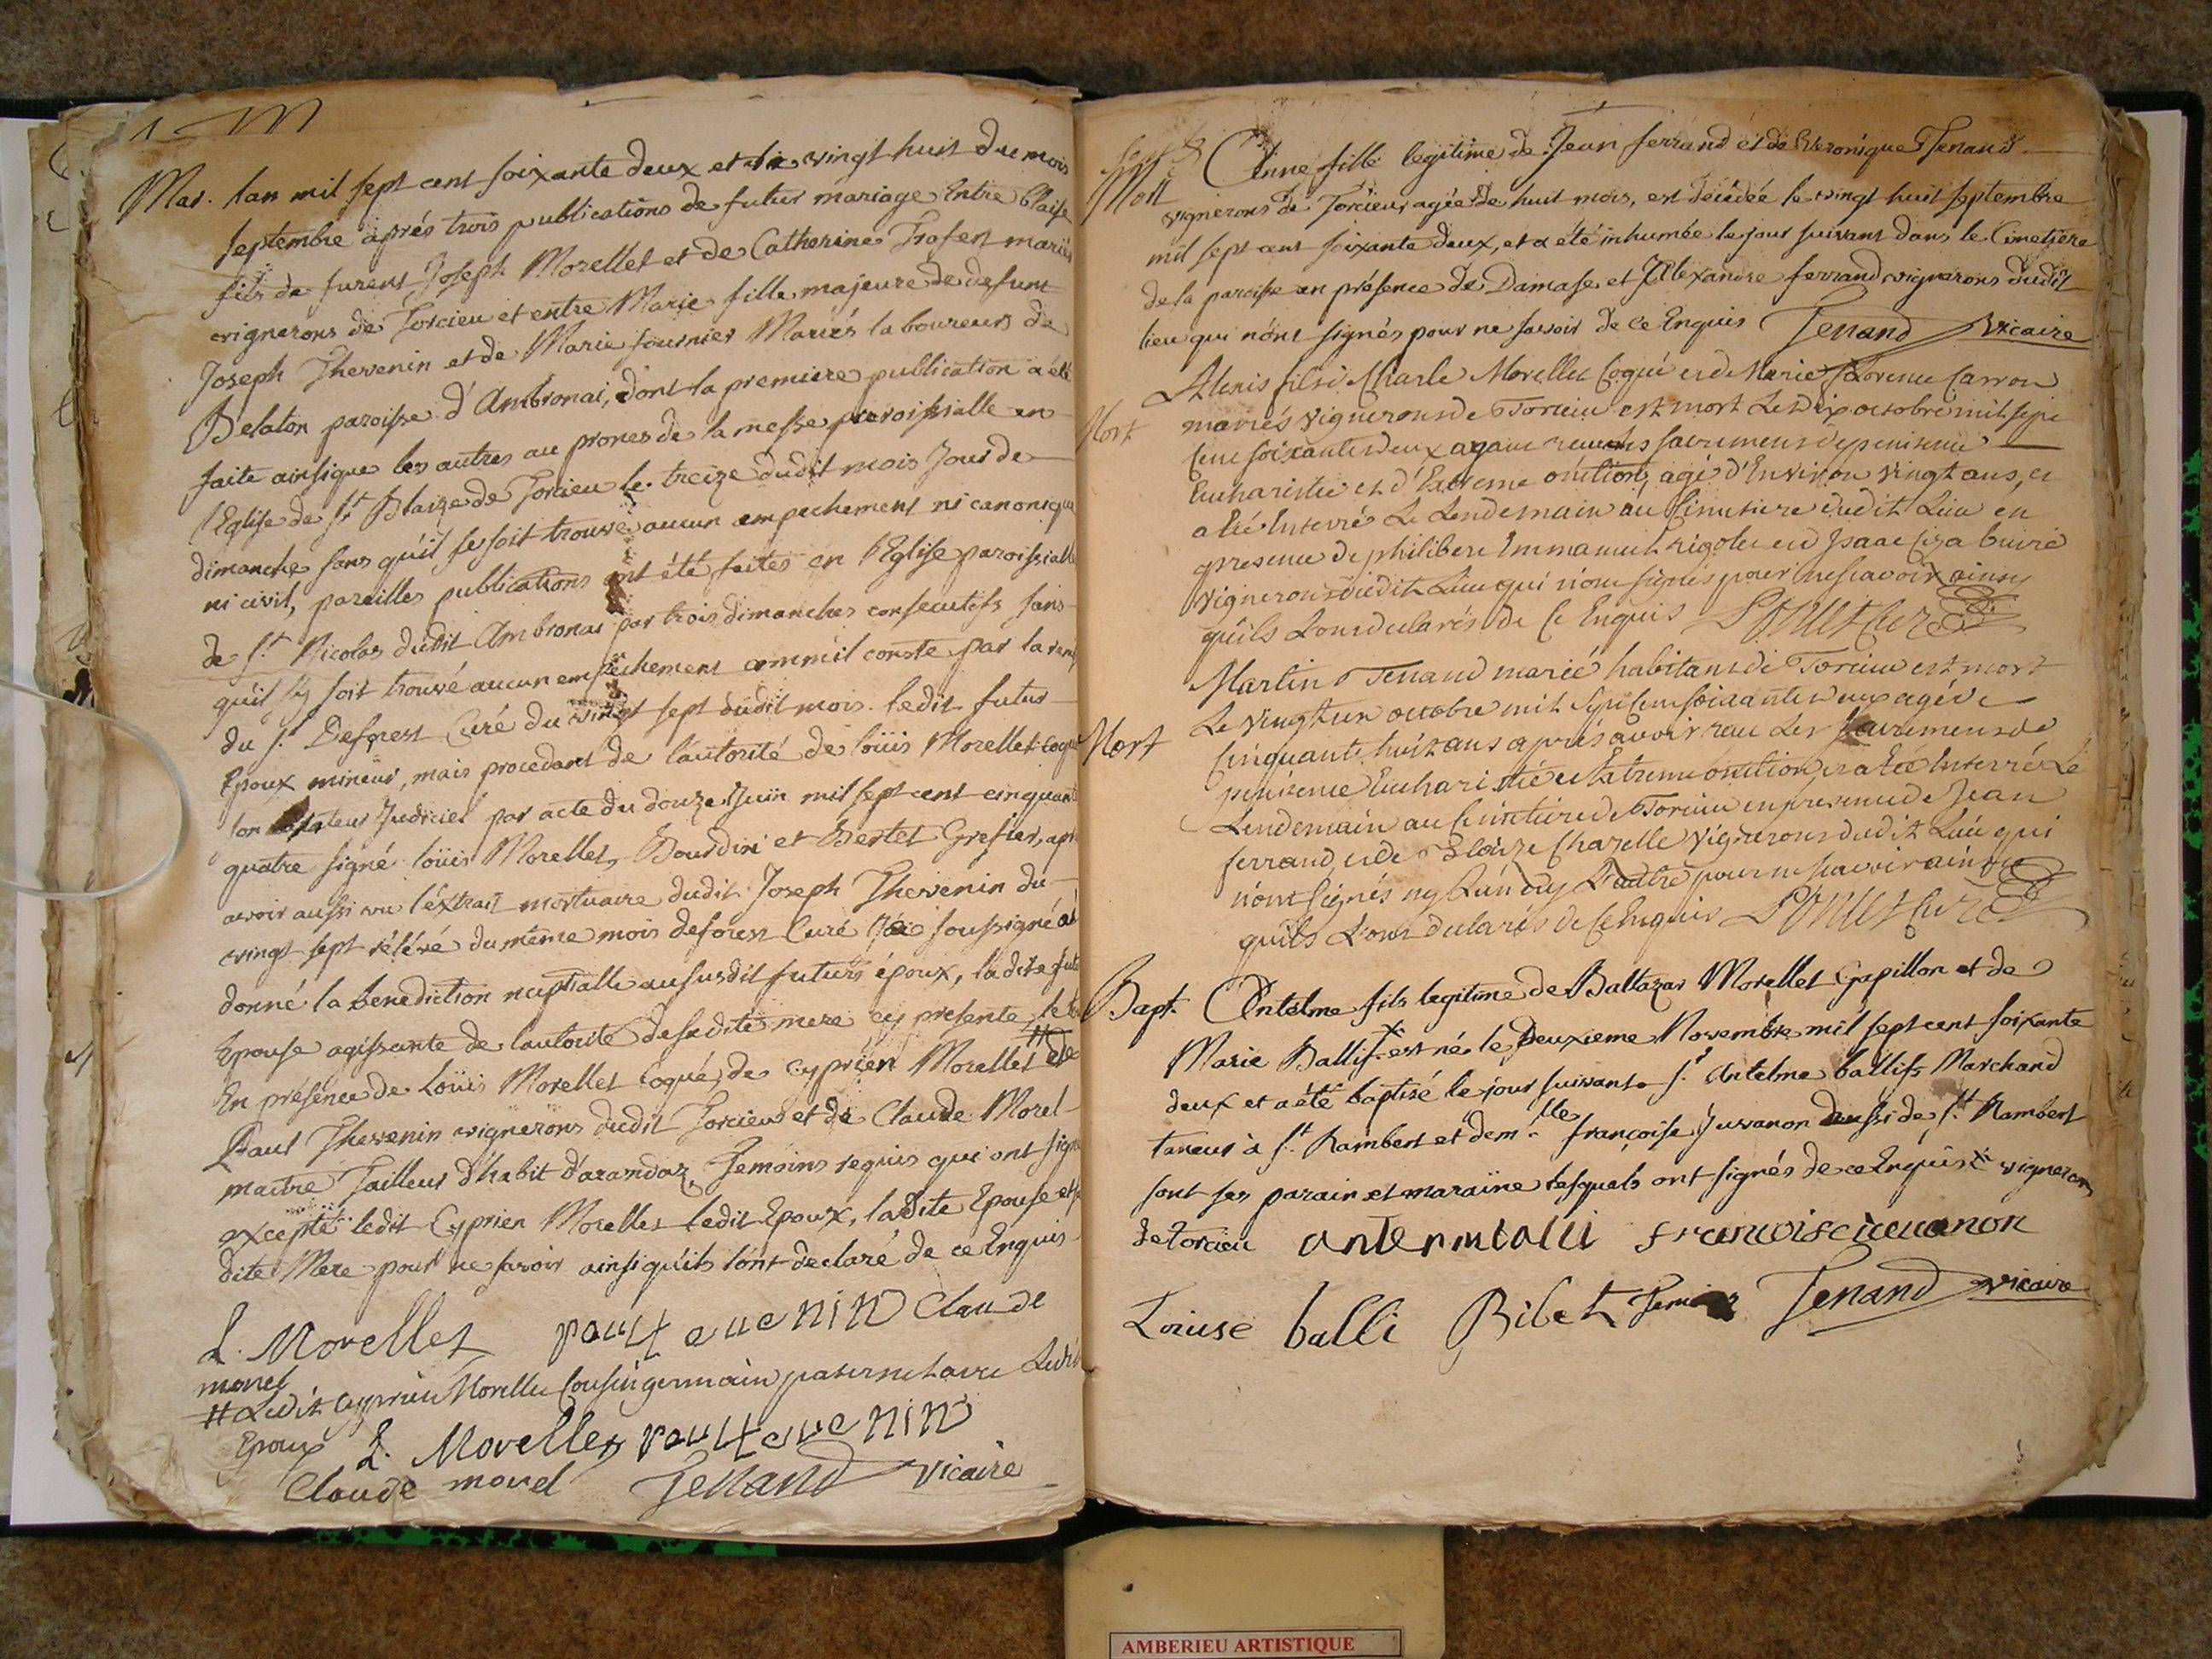 Mar. lan mil sept cent soixante deux et le vingt huit du mois
septembre aprés trois publications de futur mariage entre blaise
fils de furent Joseph Morellet et de Catherine mariés
vignerons de Torcieu et entre Marie fille majeure de defunt
Joseph Thevenin et de Marie fournier Mariés laboureurs de
Belaton paroisse d'Ambronai, dont la premiere publication a été
faite ainsique les autres au prones de la messe paroissialle en
l'Eglise de st Blaize de Torcieu le treize dudit mois Jour de
dimanche sans qu'il se soit trouvé aucun empechement ni canonique
ni civil, pareilles publications ont été faites en l'Eglise paroissialle
de st Nicolas dudit Ambronai par trois dimanches consecutifs sans
quil sy soit trouvé aucun empechement comm'il conste par la
du sr Deforest Curé du vingt sept dudit mois. ledit futur
Epoux mineur, mais procedant de l'autorité de loüis Morellet coqué
son Judiciel par acte du douze Juin mil sept cent cinquante
quatre signé loüis Morellet, Bourdin et Bertet Grefier, aprés
avoir aussi vu l'extrait mortuaire dudit Joseph Thevenin du
vingt sept du même mois deforest Curé Jai soussigné
donné la benediction nuptialle aususdit futurs époux, ladite
Epouse agissante de lautorité de sadite mere cy presente, le
En présence de Loüis Morellet coqué, de Cyprien Morellet # et de
Paul Thevenin vignerons dudit Torcieu et de Claude Morel
maitre Tailleur d'habit d'arandaz, Temoins requis qui ont signé
excepté ledit Cyprien Morellet ledit Epoux, ladite Epouse et sa
dite Mere pour ne savoir ainsi qu'ils lont declaré de ce Enquis
L. Morellet paul tevenin Claude
morel
# Ledit Cyprien Morellet Cousin germain paternel avec Ledit
Epoux L. Morellet paul tevenin
Claude morel Tenand vicaire
Mort Anne fille legitime de Jean ferrand et de Veronique Tenand
vignerons de Torcieu, agée de huit mois, est décédée le vingt huit septembre
mil sept cent soixante deux, et a été inhumée le jour suivant dans le Cimetiere
de la paroisse en présence de Damase et Alexandre ferrand vignerons dudit
lieu qui n'ont signés pour ne savoir de ce Enquis Tenand vicaire
Alexis fils de Charle Morellet Coqué et de Marie Carron
Mort mariés vignerons de Torcieu est mort Le Dix octobre mil sept
Cent soixante deux ayant sacremens de penitence
Eucharistie et d'Extreme onction, agé d'Environ vingt ans, et
a été Enterré Le Lendemain au Cimetiere dudit Lieu en
presence de philibert Emmanuel rigolet et d'Isaac
vignerons dudit Lieu qui n'ont signés pour ne scavoir ainsy
qu'ils L'ont declarés de Ce Enquis Curé
Martin Tenand marié habitant de Torcieu est mort
Le vingt un octobre mil sept Cent soixante deux agé de
Mort Cinquante huit ans aprés avoir reçu Les sacremens de
penitence Eucharistie et Extreme onction, et a été Enterré Le
Lendemain au Cimetiere de Torcieu en presence de Jean
ferrand et de Blaize Chazelle vignerons dudit Lieu qui
n'ont signés ny L'un ny L'autre pour ne scavoir ainsy
qu'ils L'ont declarés de Ce Enquis Curé
Bapt. Antelme fils legitime de Baltazar Morellet Gapillon et de
Marie Ballif × est né le Deuxieme Novembre mil sept cent soixante
deux et a été baptizé le jour suivant. sr Antelme ballif Marchand
taneur à st Rambert et demlle françoise Juvanon aussi de st Rambert
sont ses parain et maraine lesquels ont signés de ce Enquis × vignerons
de torcieu francoise iuuanon
Louise balli Ribet Tenand vicaire
AMBERIEU ARTISTIQUE